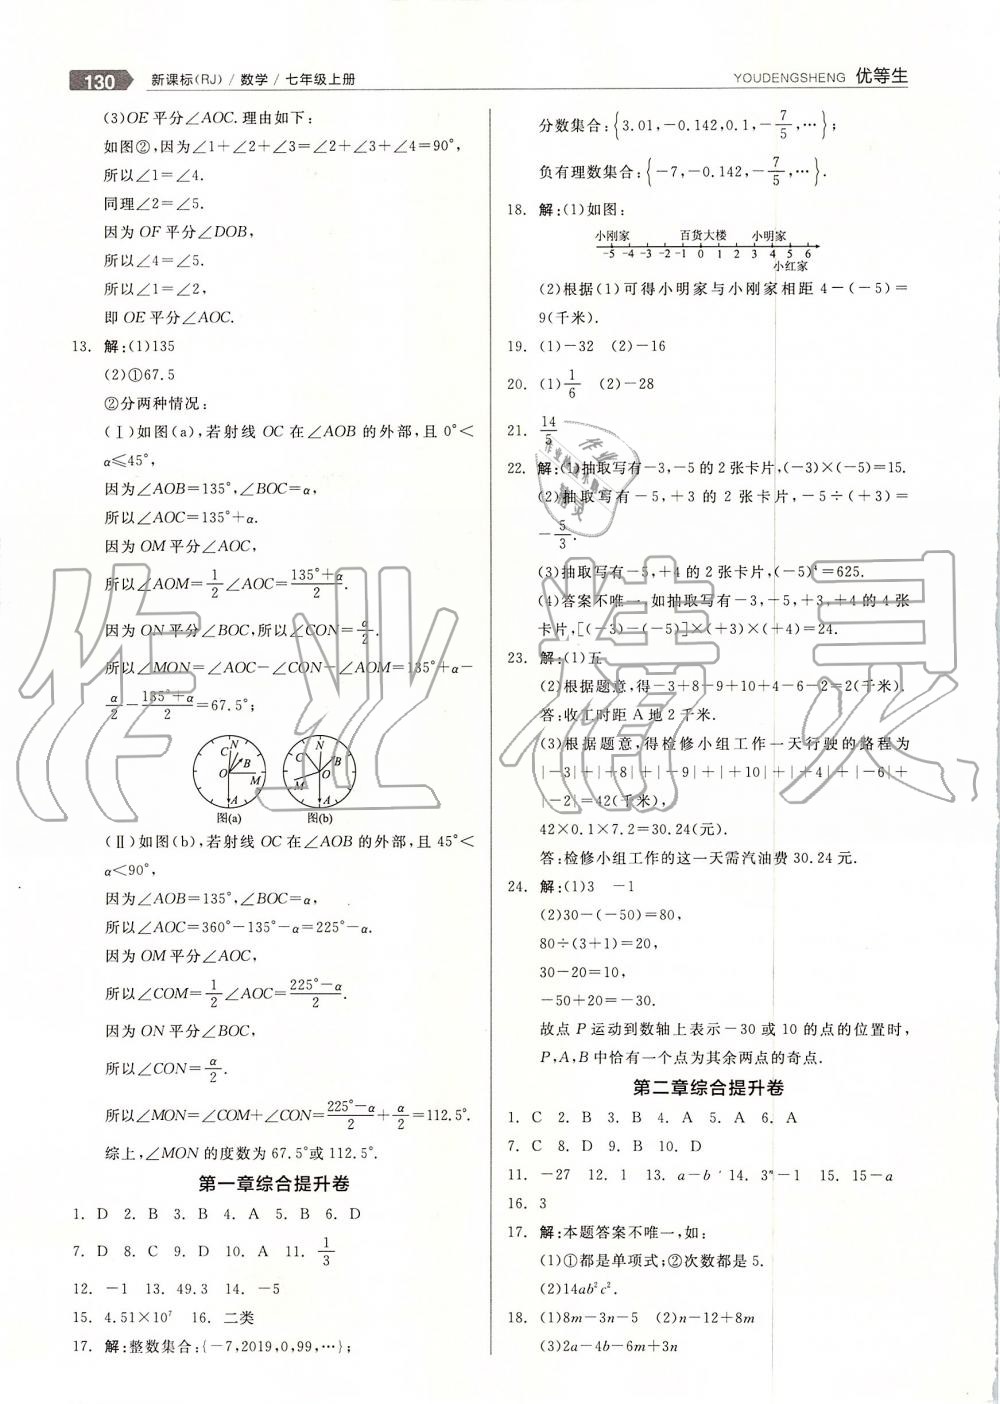 130 新课标(RJ)/数学/七年级上册
YOUDENGSHENG 优等生
(3)OE平分∠AOC.理由如下:
如图②,因为∠1+∠2+∠3=∠2+∠3+∠4=90°,
所以∠1=∠4.
同理∠2=∠5.
因为OF平分∠DOB,
所以∠4=∠5.
所以∠1=∠2,
即OE平分∠AOC.
13. 解:(1)135
(2)①67.5
②分两种情况:
(Ⅰ)如图(a),若射线OC在∠AOB的外部,且0°<
α≤45°,
因为∠AOB=135°,∠BOC=α,
所以∠AOC=135°+α.
因为OM平分∠AOC,
所以∠AOM=1/2∠AOC=(135°+α)/2.
因为ON平分∠BOC,所以∠CON=α/2.
所以∠MON=∠AOC-∠CON-∠AOM=135°+α-
α/2-(135°+α)/2=67.5°;
C N B O M A
C N B O M A
图(a) 图(b)
(Ⅱ)如图(b),若射线OC在∠AOB的外部,且45°<
α<90°,
因为∠AOB=135°,∠BOC=α,
所以∠AOC=360°-135°-α=225°-α.
因为OM平分∠AOC,
所以∠COM=1/2∠AOC=(225°-α)/2.
因为ON平分∠BOC,
所以∠CON=α/2.
所以∠MON=∠COM+∠CON=(225°-α)/2+α/2=112.5°.
综上,∠MON的度数为67.5°或112.5°.
第一章综合提升卷
1. D 2. B 3. B 4. A 5. B 6. D
7. D 8. C 9. D 10. A 11. 1/3
12. -1 13. 49.3 14. -5
15. 4.51×10⁷ 16. 二类
17. 解:整数集合:{-7,2019,0,99,…};
分数集合:{3.01,-0.142,0.1,-7/5,…};
负有理数集合:{-7,-0.142,-7/5,…}.
18. 解:(1)如图:
小刚家 百货大楼 小明家
-5 -4 -3 -2 -1 0 1 2 3 4 5 6
小红家
(2)根据(1)可得小明家与小刚家相距4-(-5)=
9(千米).
19. (1)-32 (2)-16
20. (1)1/6 (2)-28
21. 14/5
22. 解:(1)抽取写有-3,-5的2张卡片,(-3)×(-5)=15.
(2)抽取写有-5,+3的2张卡片,-5÷(+3)=
-5/3.
(3)抽取写有-5,+4的2张卡片,(-5)⁴=625.
(4)答案不唯一,如抽取写有-3,-5,+3,+4的4张
卡片,[(-3)-(-5)]×(+3)×(+4)=24.
23. 解:(1)五
(2)根据题意,得-3+8-9+10+4-6-2=2(千米).
答:收工时距A地2千米.
(3)根据题意,得检修小组工作一天行驶的路程为
|-3|+|+8|+|-9|+|+10|+|+4|+|-6|+
|-2|=42(千米),
42×0.1×7.2=30.24(元).
答:检修小组工作的这一天需汽油费30.24元.
24. 解:(1)3 -1
(2)30-(-50)=80,
80÷(3+1)=20,
30-20=10,
-50+20=-30.
故点P运动到数轴上表示-30或10的点的位置时,
P,A,B中恰有一个点为其余两点的奇点.
第二章综合提升卷
1. C 2. B 3. B 4. A 5. A 6. A
7. C 8. D 9. B 10. D
11. -27 12. 1 13. a-b 14. 3ⁿ-1 15. 15-a
16. 3
17. 解:本题答案不唯一,如:
(1)①都是单项式;②次数都是5.
(2)14ab²c².
18. (1)8m-3n-5 (2)n-12+8m
(3)2a-4b-6m+3n
作业精灵